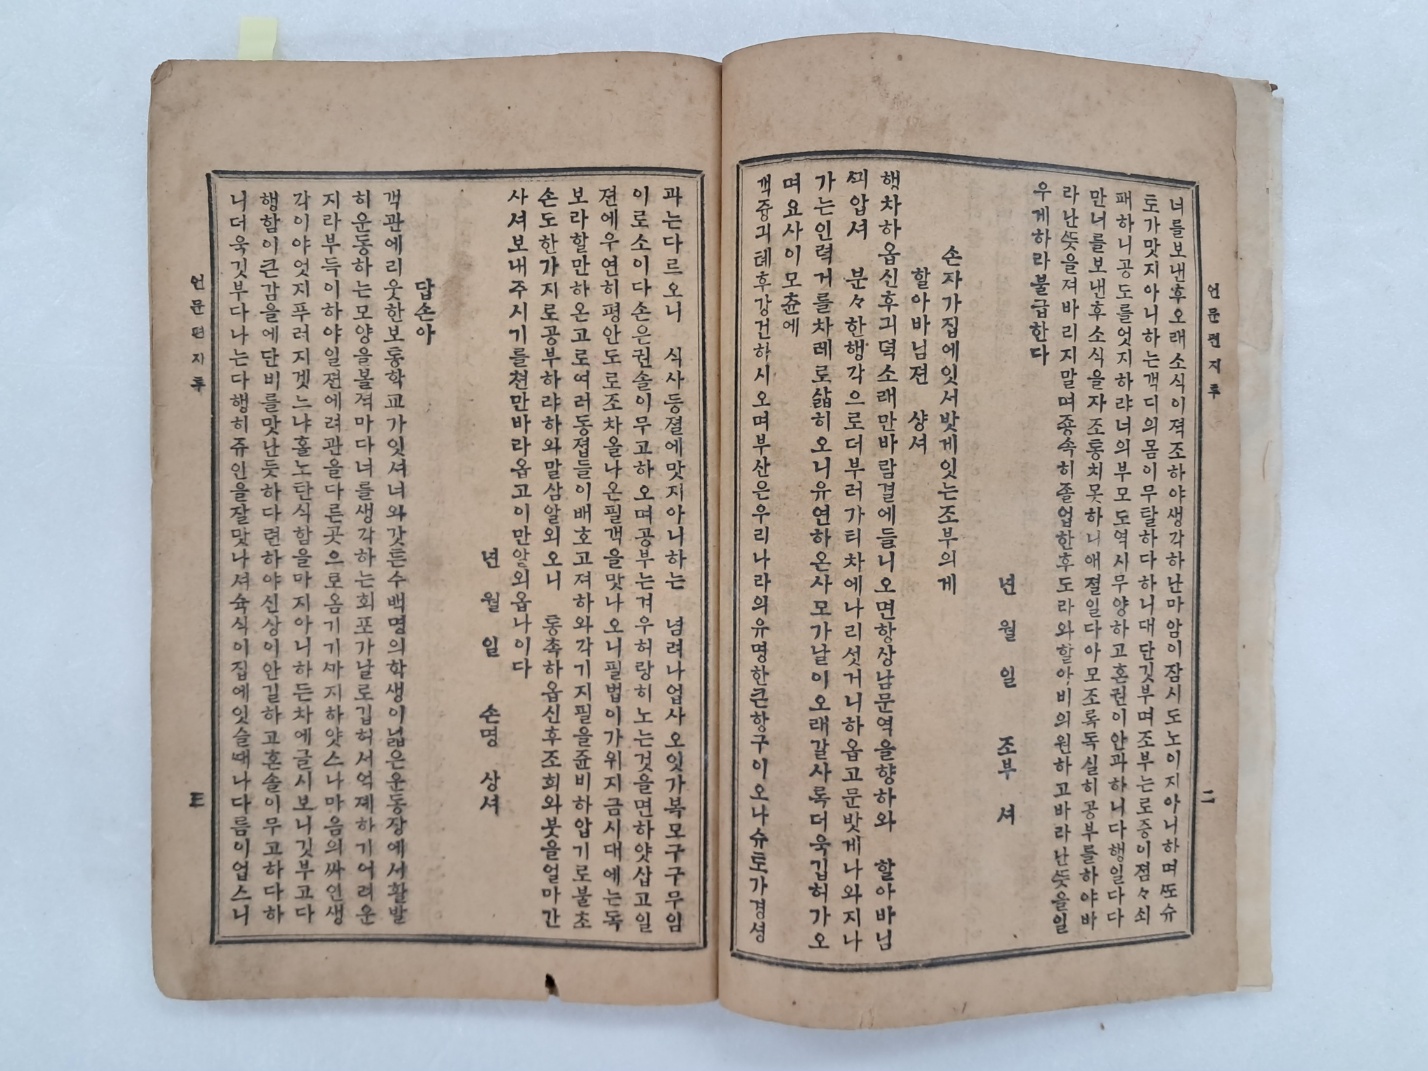 언문편지투
二
너를보낸후오래소식이젹조하야생각하난마암이잠시도노이지아니하며또슈
토가맛지아니하는객디의몸이무탈하다하니대단깃부며조부는로증이졈々쇠
패하니공도를엇지하랴너의부모도역시무양하고혼권이안과하니다행일다다
만너를보낸후소식을자조통치못하니애졀일다아모조록독실히공부를하야바
라난뜻을져바리지말며죵속히졸업한후도라와할아비의원하고바라난뜻을일
우게하라불급한다
년 월 일 조부 셔
손자가집에잇서밧게잇는조부의게
할아바님젼 샹셔
행차하옵신후긔뎍소래만바람결에들니오면항상남문역을향하와 할아바님
끠압셔 분々한행각으로더부러가티차에나리섯거니하옵고문밧게나와지나
가는인력거를차례로삷히오니유연하온사모가날이오래갈사록더욱깁허가오
며요사이모츈에
객즁긔톄후강건하시오며부산은우리나라의유명한큰항구이오나슈토가경셩
과는다르오니 식사등졀에맛지아니하는 념려나업사오잇가복모구구무임
이로소이다손은권솔이무고하오며공부는겨우허랑히노는것을면하얏삽고일
젼에우연히평안도로조차올나온필객을맛나오니필법이가위지금시대에는독
보라할만하온고로여러동졉들이배호고져하와각기지필을쥰비하압기로불초
손도한가지로공부하랴하와말삼알외오니 통촉하옵신후조희와붓을얼마간
사셔보내주시기를쳔만바라옵고이만알외옵나이다
년 월 일 손명 상셔
답손아
객관에리웃한보통학교가잇셔너와갓튼수백명의학생이넓은운동장에서활발
히운동하는모양을볼젹마다너를생각하는회포가날로깁허서억졔하기어려운
지라부득이하야일젼에려관을다른곳으로옴기기까지하얏스나마음의싸인생
각이야엇지푸러지겟느냐홀노탄식함을마지아니하든차에글시보니깃부고다
행함이큰감을에단비를맛난듯하다련하야신상이안길하고혼솔이무고하다하
니더욱깃부다나는다행히쥬인을잘맛나셔슉식이집에잇슬때나다름이업스니
언문편지투
三